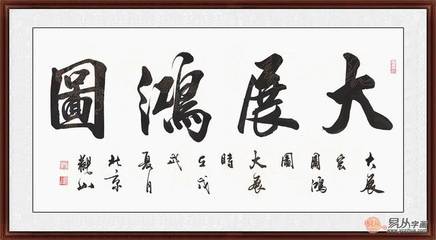 大展鴻圖
大展
宏
圖鴻
圖
大展
時
在戊
戌
夏月
北京
觀山
字画